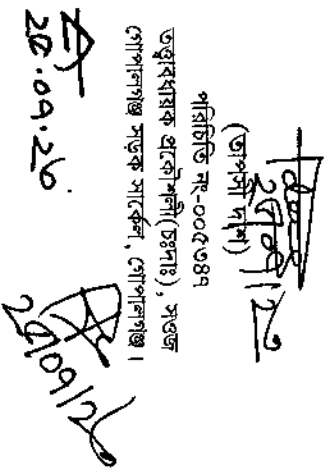 ২৫/০৭/২
(তাপসী দাশ)
পরিচিতি নং-০০৫৩৪৭
তত্ত্বাবধায়ক প্রকৌশলী(চঃদাঃ), সওজ
গোপালগঞ্জ সড়ক সার্কেল, গোপালগঞ্জ।
২৫.০৭.২৬
২৫/০৭/২৬